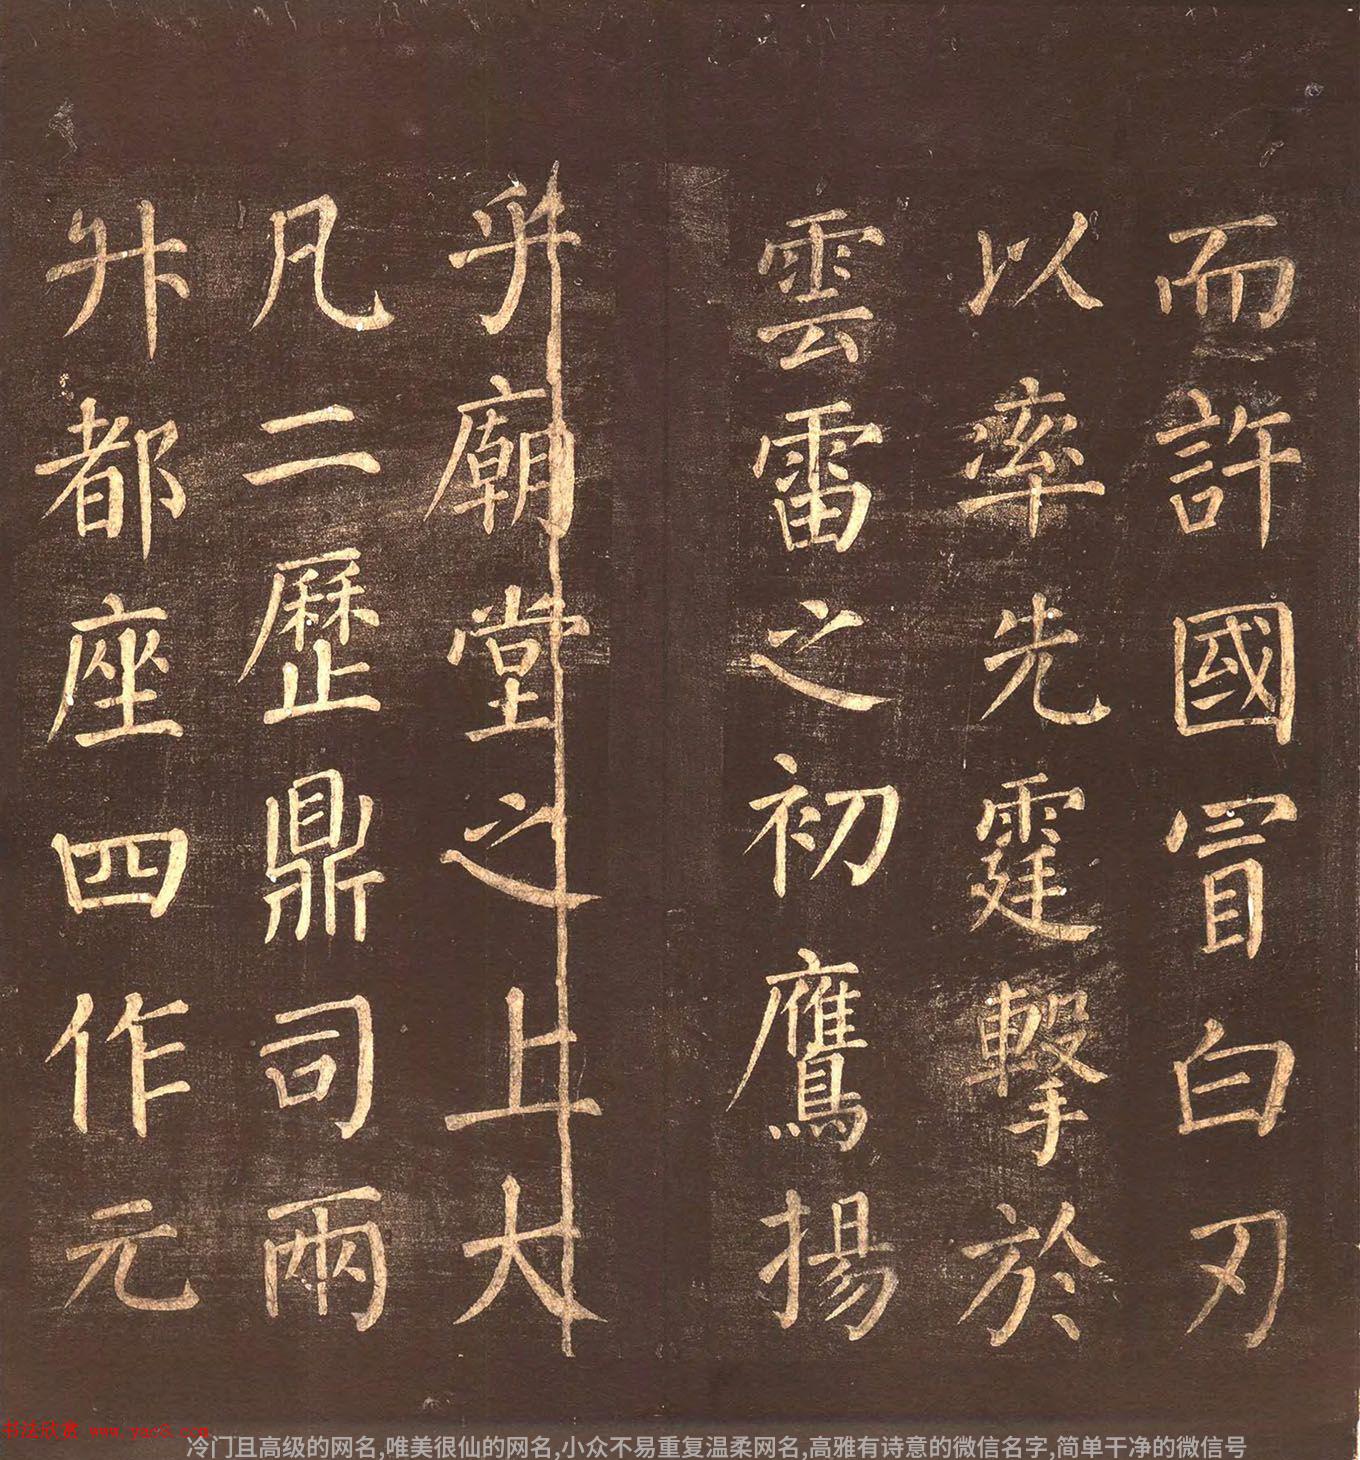 而許國冒白刃
以率先霆擊於
雲雷之初鷹揚
乎廟堂之上大
凡二歷鼎司兩
升都座四作元
书法欣赏 www.yac8.com
冷门且高级的网名,唯美很仙的网名,小众不易重复温柔网名,高雅有诗意的微信名字,简单干净的微信号